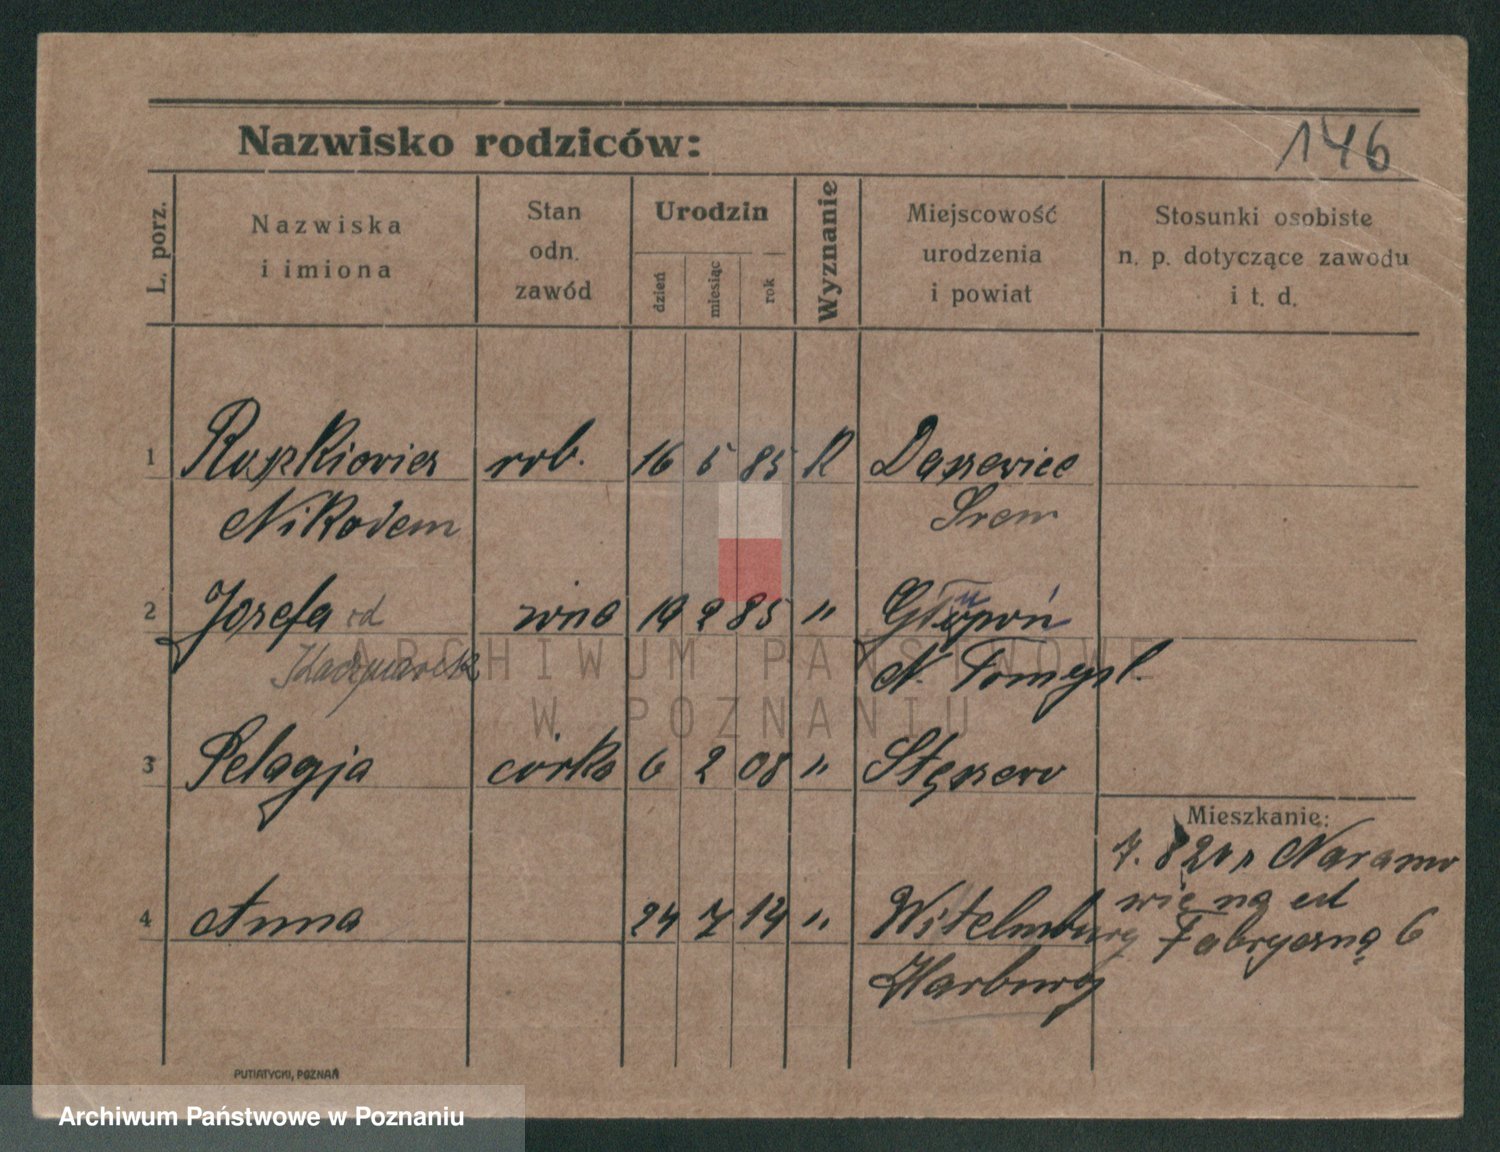 146
Nazwisko rodziców:
L. porz.
Nazwiska
i imiona
Stan
odn.
zawód
Urodzin
dzień
miesiąc
rok
Wyznanie
Miejscowość
urodzenia
i powiat
Stosunki osobiste
n. p. dotyczące zawodu
i t. d.
1 rob. 16 5 85 R Daszewice
Nikodem Śrem
2 Józefa żona 19 2 85 "
Kaczmarek N. Tomyśl.
3 Pelagja córka 6 2 08 " Stęszew
Mieszkanie:
7. 8 20 r Naramo
wie na ul
4 Anna 24 7 14 " Wilelmburg
Fabryczną 6
Harburg
PUTIATYCKI, POZNAŃ
ARCHIWUM PAŃSTWOWE
W POZNANIU
Archiwum Państwowe w Poznaniu